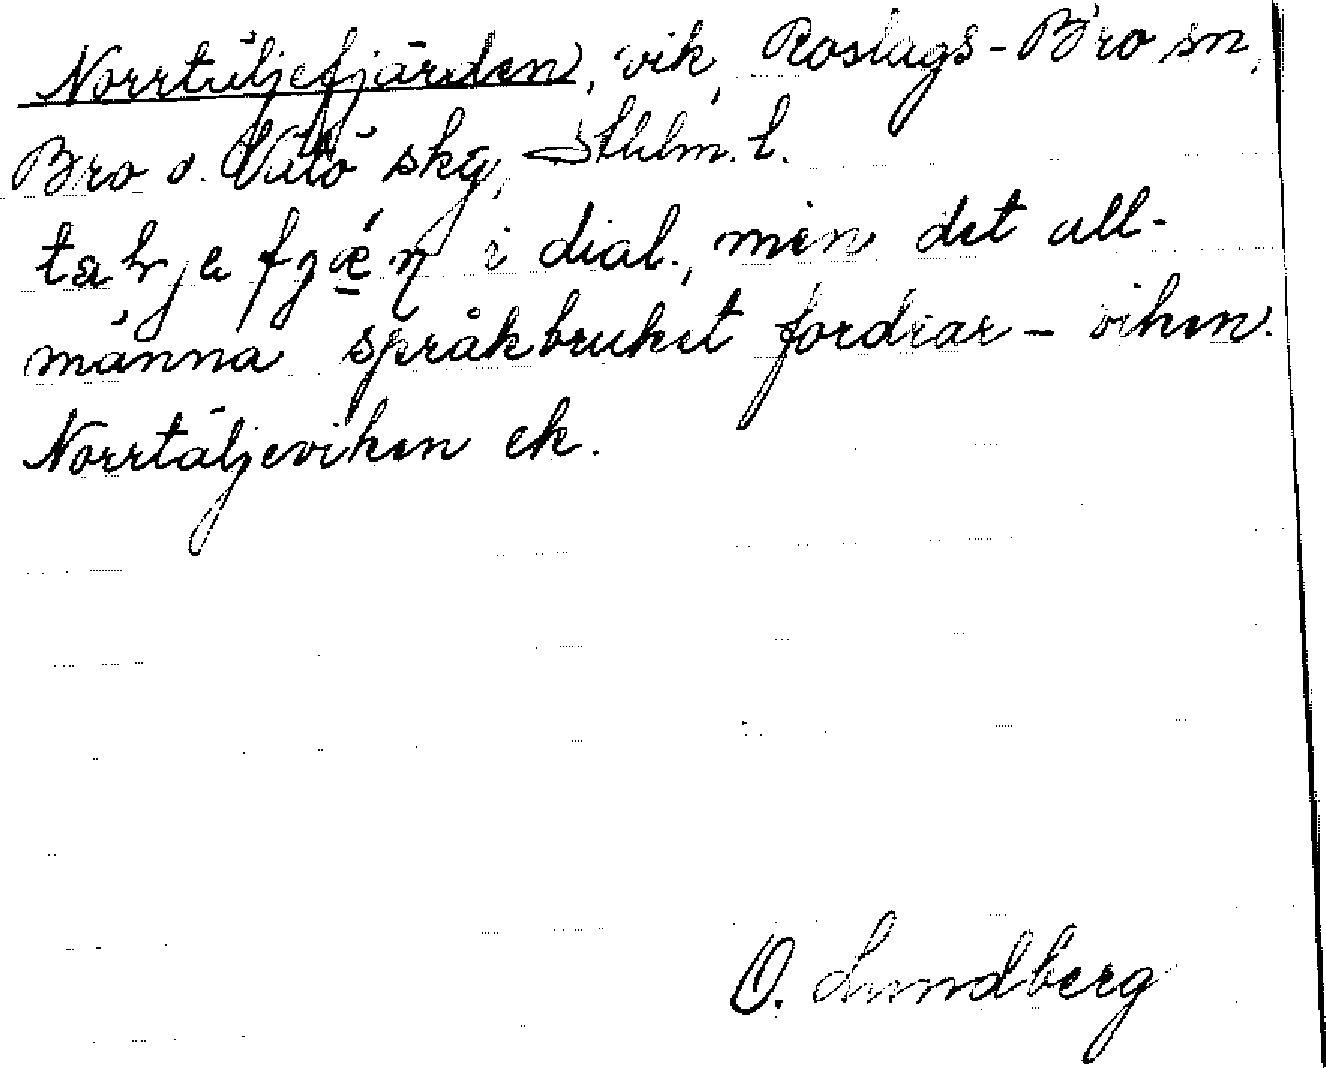 Norrtäljefjärden, vik, Roslags-Bro sn,
Bro o. Vätö skg, Sthlm. l.
i dial., men det all-
männa språkbruket fordrar - viken.
Norrtäljeviken ek.
O. Lundberg